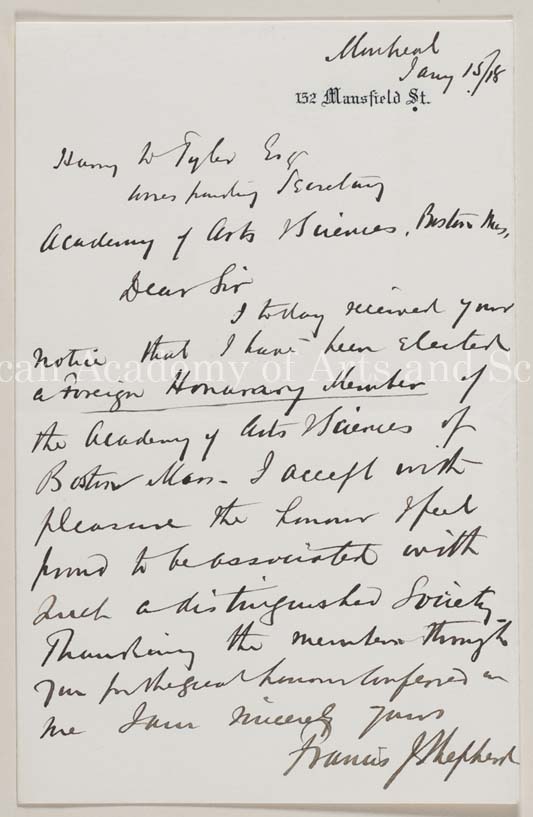 Montreal
Jany 15/18
152 Mansfield St.
Harry W Tyler Esq
Corresponding Secretary
Academy of Arts & Sciences, Boston Mas,
Dear Sir
I today received your
notice that I have been elected
a Foreign Honorary Member of
the Academy of Arts & Sciences of
Boston Mass - I accept with
pleasure the honour & feel
proud to be associated with
such a distinguished Society -
Thanking the members through
you for the great honour conferred on
me I am sincerely yours
Francis J Shepherd
can Academy of Arts and Sc